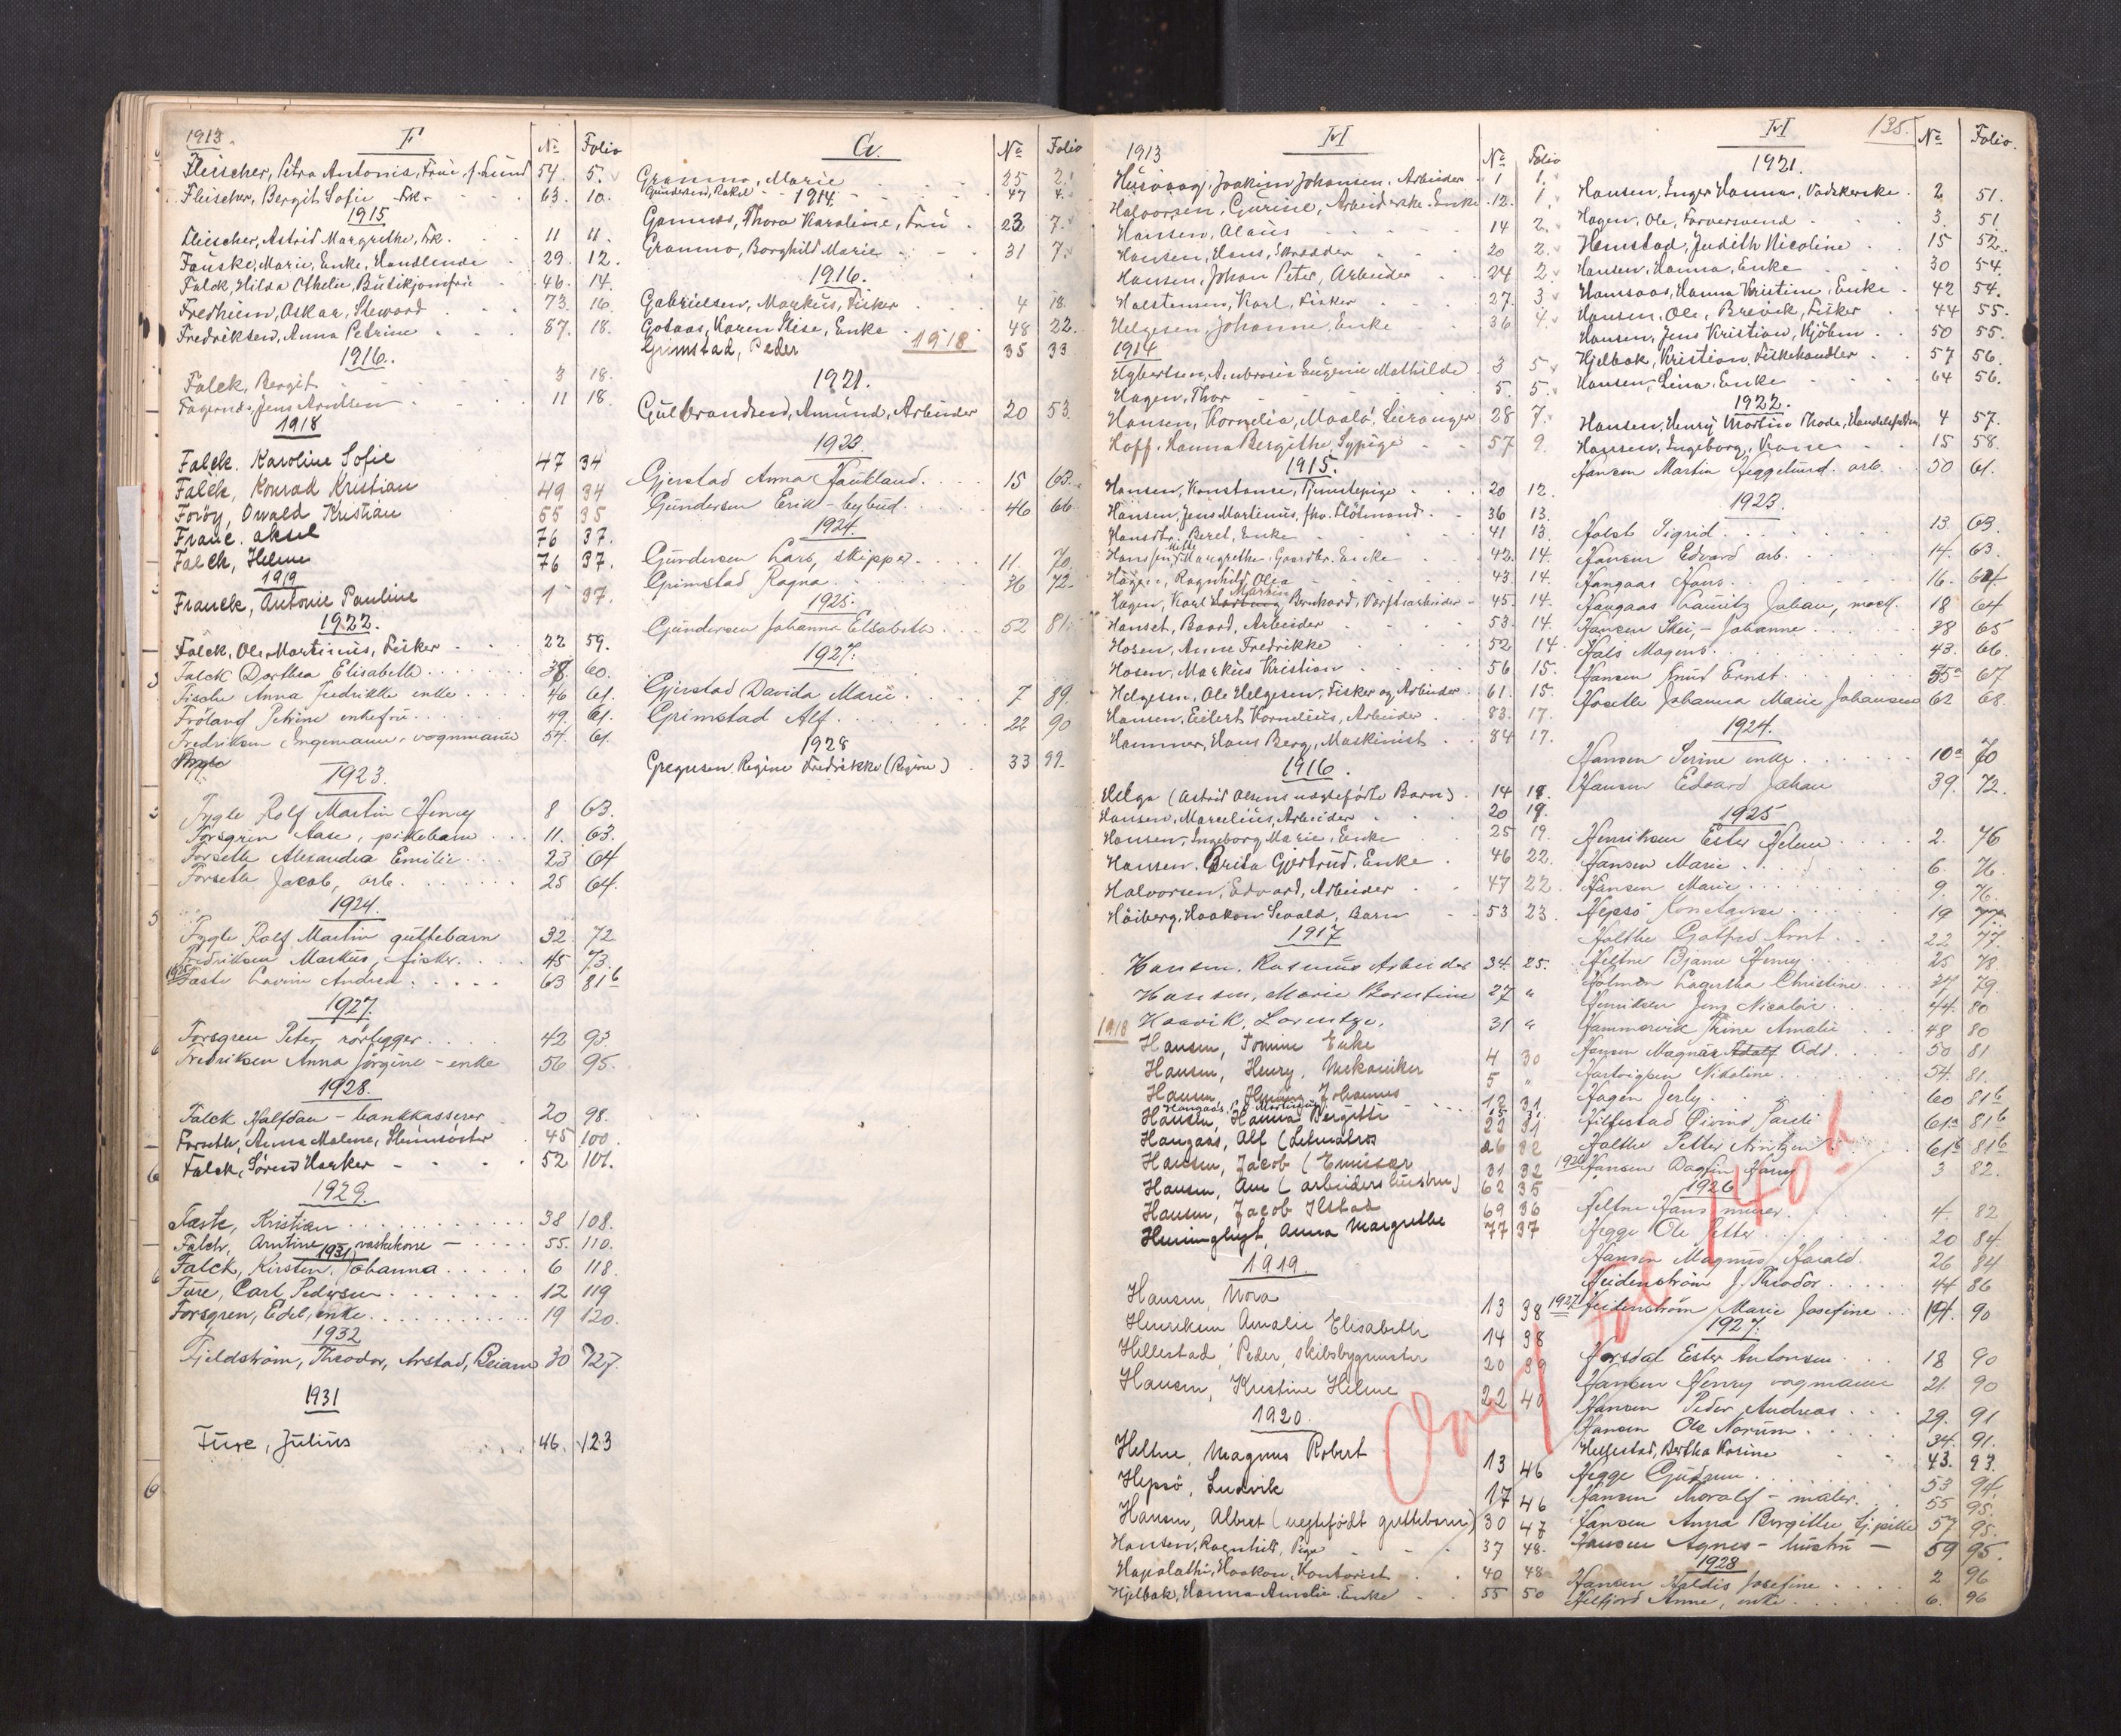 1913. F No Folio
Fleischer, Petra Antonie, Frue, f. Lund 54. 5.
Fleischer, Bergit Sofie Frk. 63. 10.
1915
Fleischer, Astrid Margrethe, Frk. 11 11.
Fauske, Marie, Enke, Handlende 29. 12.
Falck, Hilda Othelie, Butikjomfru 46. 14.
Fredheim, Oskar, Steward 73. 16.
Fredriksen, Anna Petrine 87. 18.
1916.
Falck, Bergit 3 18.
Fagernes, Jens Arntsen 11 18.
1918
Falck. Karoline Sofie 47 34
Falck, Konrad Kristian 49 34
Forøy, Oswald Kristian 55 35
Franc. aksel 76 37.
Falch, Helene 76 37.
1919
Franck, Antonie Pauline 1 37.
1922.
Falck, Ole Martinius, Fisker 22 59.
Falck Dorthea Elisabeth 38. 60.
Fische Anna Fredrikke enke 46 61.
Frøland Petrine enkefru 49. 61.
Fredriksen Ingemann, vognmann 54. 61.
1923.
Fygle Rolf Martin Henry 8 63.
Forsgren Aase, pikebarn 11. 63.
Forseth Alexandra Emilie 23 64
Forseth Jacob, arb. 25 64.
1924.
Fygle Rolf Martin guttebarn 32. 72
Fredriksen Markus, fisker. 45 73.
1925 Fæste Lovine Andrea 63 81b
1927.
Forsgren Peter rørlegger 42 93.
Fredriksen Anna Jørgine - enke 56 95.
1928.
Falck Halfdan - bankkasserer 20 98.
Forseth, Anna Malene, Steinsøster 45 100.
Falck, Søren Harker 52 101.
1929.
Fæste, Kristian 38 108.
Falch, Arntine, vaskekone 55. 110.
1931
Falck, Kirsten, Johanna 6 118.
Fure, Carl Pedersen 12 119
Forsgren, Edel, enke 19 120.
1932
Fjeldstrøm, Theodor, Arstad, Beiarn 30 127.
1931
Fure, Julius 46. 123
G. No Folio
Granmo, Marie 25 2.
Gundersen, Rakel 47 4.
1914
Gamnes, Thora Karoline, Fru 23 7.
Granmo, Borghild Marie 31 7.
1916.
Gabrielsen, Markus, Fisker 4 18.
Gotaas, Karen Elise, Enke 48 22.
1918
Grimstad, Peder 35 33
1921.
Gulbrandsen, Amund, Arbeider 20 53.
1923.
Gjerstad Anna Faukland. 15 63.
Gundersen Erik - bybud 46 66.
1924.
Gundersen Lars, skipper 11. 70.
Grimstad Ragna 36 72.
1925.
Gundersen Johanna Elisabeth 52 81.
1927.
Gjerstad Davida Marie 7 89.
Grimstad Alf 22 90
1928
Gregusen Regine Fredrikke (Regine) 33 99.
1913 H No Folio
Husvaag, Joakim Johansen. Arbeider 1 1.
Halvorsen, Gurine, Arbeiderske. Enke 12. 1.
Hansen, Olaus 14 2.
Hansen, Hans, Skrædder 20 2.
Hansen, Johan Peter, Arbeider 24 2
Halstensen, Karl, Fisker 27. 3
Helgesen, Johanne Enke 36 4
1914
Egbertsen, Ambrosia Eugenie Mathilde 3 5
Hagen, Thor 5. 5.
Hansen, Kornelia, Maalø, Leiranger 28 7.
Hoff. Hanna Bergithe, Sypige 57 9.
1915.
Hansen, Konstanse, Tjenestepige 20 12.
Hansen, Jens Martinus, fhv. Slotmand. 36 13.
Hansdtr. Beret, Enke 41 13.
Hansen, Mette Margrethe. Gaardbr. Enke 42. 14.
Hagen, Ragnhild Olea 43. 14.
Hagen, Karl Martin Bernhard, Verftsarbeider 45. 14.
Hanset, Baard, Arbeider 53. 14.
Hosen, Anne Fredrikke 52 14
Hosen, Markus Kristian 56 15.
Helgesen, Ole Helgesen, Fisker og Arbeider 61. 15.
Hansen, Eilert Kornelius, Arbeider 83. 17.
Hammer, Hans Berg, Maskinist 84 17.
1916.
Helga (Astrid Olsens uægtefødte Barn) 14 18.
Hansen, Marselius, Arbeider 20 19.
Hansen, Ingeborg Marie, Enke 25 19.
Hansen, Brita Gjertrud. Enke 46 22.
Halvorsen, Edvard, Arbeider 47 22
Høiberg, Haakon Sevald, Barn 53 23.
1917
Hansen, Rasmus Arbeider 34. 25.
Hansen, Marie Berntine 27 "
Haavik, Lorentze. 31 "
1918
Hansen, Tomine Enke 4 30
Hansen, Henry, Mekaniker 5 "
Hansen Henning Johannes 12 31
Hansen, Hanna Bergitte 22 31
Haugaas, Alf (Letmatros 26 32
Hansen, Jacob (Emissær 31 32
Hansen, Ane (arbeiders hustru) 62 35
Hansen, Jacob Ilstad 69 36
Heminghyt, Anna Margrethe 77 37
1919.
Hansen, Nora 13 38
Henriksen Amalie Elisabeth 14 38
Hillestad, Peder, skibsbygmester 20 39
Hansen, Kristine Helene 22 40
1920.
Heltne, Magnus Robert 13 46
Hepsø, Ludvik 17 46
Hansen, Albert (uegtefødt guttebarn) 30 47
Hansen, Ragnhild, Pige 37 48.
Hapalathi, Haakon, Kontorist 40 48
Hjelbak, Hanna Amalie. Enke 55 50
H 135. No Folio.
1921.
Hansen, Inger Hanna, Vadskerske. 2 51.
Hagen, Ole, Farversvend 3. 51
Hemstad, Judith Nicoline 15 52.
Hansen, Hanna, Enke 30 54.
Hansaas, Hanna Kristine, Enke 42 54.
Hansen, Ole, Brevik, Fisker 44 55.
Hansen, Jens Kristian, Kjøbm. 50 55.
Hjelbak, Kristian, Fiskehandler 57 56.
Hansen, Lina. Enke 64 56.
1922.
Hansen, Henry Martin Thode, Handelsfuldm. 4 57.
Hansen, Ingeborg, Kone 15 58.
Hansen Martin Heggelund. arb. 50 61.
1923.
Holst Sigrid 13 63.
Hansen Edvard arb. 14. 63.
Haugaas Hans 16. 64
Haugaas Lauritz Johan, 18 64
Hansen Skei, - Johanne 38 65
Hals Magnus 43. 66.
Hansen Knut Ernst. 55a 67
Hoseth Johanna Marie Johansen 62 68.
1924.
Hansen Serine enke 10a 70
Hansen Edvard Johan 39. 72.
1925
Henriksen Ester Helene 2. 76
Hansen Marie 6. 76.
Hansen Marie 9. 76.
Hepsø Konstanse 19 77.
Holthe Gotfred Arnt 22 77.
Heltne Bjarne Henry 25 78
Holmen Lagertha Christine 37 79.
Henriksen Jens Nicolai 44. 80
Hammervik Trine Amalie 48 80
Hansen Magnar Adolf Odd. 50 81
Hartvigsen Nikoline 54. 81.
Hagen Jerly 60 81b
Hillestad Øivind 61a 81b
Holthe Petter Arntzen 61b 81b
1926 Hansen Dagfin Harry 3 82.
1926
Heltne Hans murer 4. 82
Hegge Ole Petter 20 84.
Hansen Magnus Harald 26 84
Heidenstrøm J. Theodor 44 86
1927 Heidenstrøm Marie Josefine 14. 90
1927.
Horsdal Ester Antonsen 18 90
Hansen Henry vogmann 21. 90
Hansen Peder Andreas 29. 91
Hansen Ole Norum 34. 91.
Hellestad, Bertha Kosine 43. 93.
Hegge Gudrun 53 94.
Hansen Thoralf - maler. 55 95.
Hansen Anna Bergitte tj. pike 57 95.
Hansen Agnes - hustru - 59 95.
1928
Hansen Haldis Josefine 2 96
Helfjord Anne, enke 6. 96
Overf fol 140b